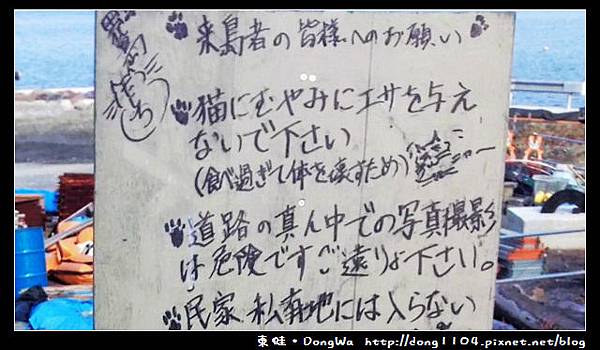 来島者の皆様へのお願い
猫にむやみにエサを与え
ないで下さい
(食べ過ぎて体を壊すため)
道路の真ん中での写真撮影
は危険ですご遠りょ下さい。
民家、私有地には入らない
東蛙·DongWa http://dong1104.pixnet.net/blog